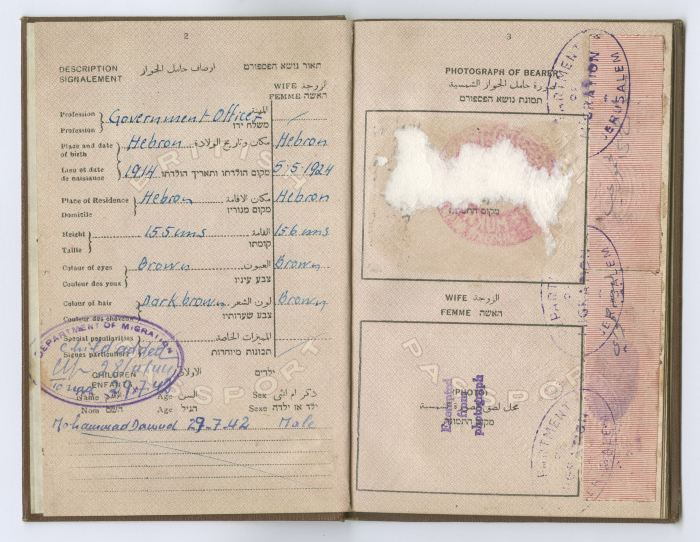 2
DESCRIPTION
SIGNALEMENT
اوصاف حامل الجواز
תאור נושא הפספורט
WIFE الزوجة
FEMME האשה
Profession
Profession
Government Officer
المهنة
משלח ידו
Place and date of birth
Hebron
مكان وتاريخ الولادة
Hebron
Lieu et date de naissance
1914
מקום הולדתו ותאריך הולדתו
5 5 1924
Place of Residence
Hebron
مكان الاقامة
Hebron
Domicile
מקום מגוריו
Height
155 cms
القامة
156 cms
Taille
קומתו
Colour of eyes
Brown
العيون
Brown
Couleur des yeux
צבע עיניו
Colour of hair
Dark brown
لون الشعر
Brown
Couleur des cheveux
צבע שערותיו
Special peculiarities
المميزات الخاصة
Signes particuliers
תכונות מיוחדות
DEPARTMENT OF MIGRATION
Child added
CHILDREN
الاولاد
ילדים
ENFANTS
Name
Age السن
Sex ذكر ام انثى
Nom השם
Age הגיל
Sexe ילד או ילדה
Mohammad Dawud 29.7.42 Male
BRITISH
PASSPORT
3
PHOTOGRAPH OF BEARER
صورة حامل الجواز الشمسية
תמונת נושא הפספורט
WIFE الزوجة
FEMME האשה
(PHOTO)
Exempted from photograph
PASSPORT
DEPARTMENT OF MIGRATION JERUSALEM